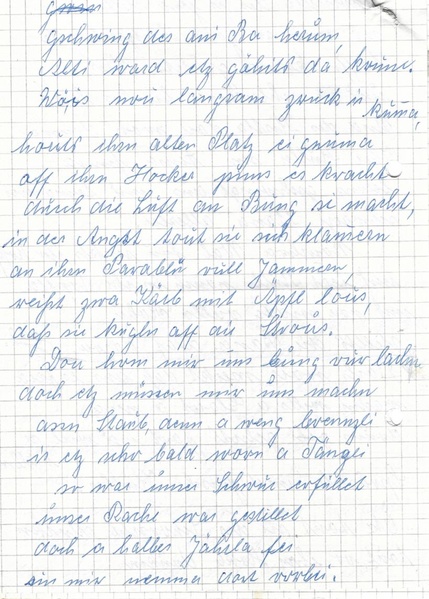 gschwing des ani Ba herům,
Alti ward etz gähits da krům.
Wöis nou langsam zruck is kumma,
houts ihrn alten Platz eignuma
aff ihrn Hocker pums es kracht
durch die Luft an Bung si macht,
in der Angst tout sie sich klamern
an ihrn Parablü vull Jammern,
reißt zwa Körb mit Äpfl lous,
daß sie kugln aff die Strous.
Dou hom mir uns bung vur lachn
doch etz müssen mir uns machn
asn Staub, denn a weng brenzli
is etz uhr bald worn a Tänzli
so war unser Schwur erfüllet
unser Rache war gestillet
doch a halbes Jährla fei
sin mir nemma dort vorbei.